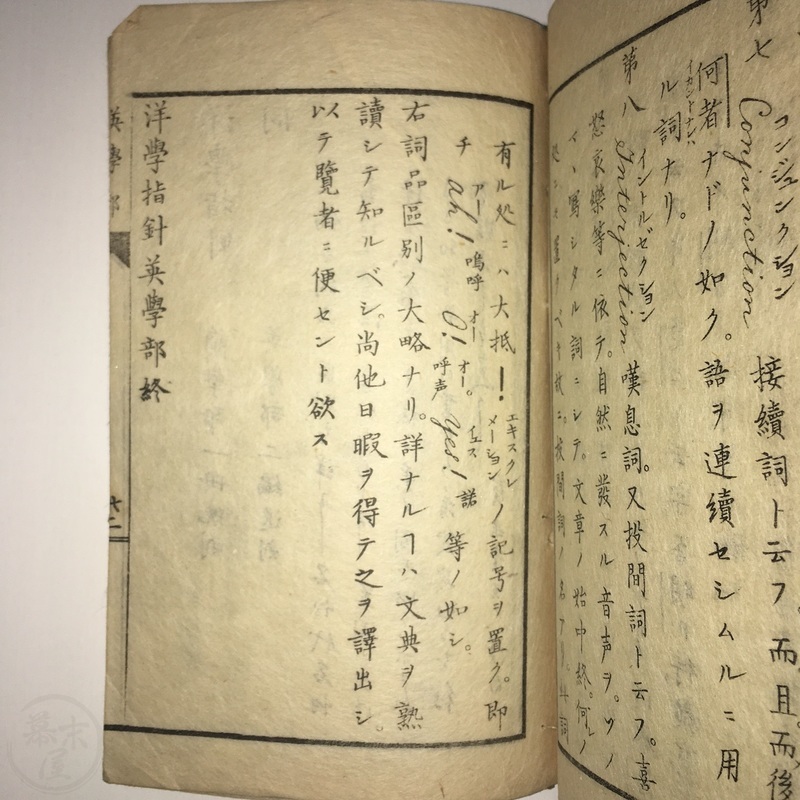 第七 Conjunction 接續詞ト云フ。而且。而後
コンジュンクション
何者ナドノ如ク。語ヲ連續セシムルニ用
イカントナレバ
ル詞ナリ。
第八 Interjection 嘆息詞。又投間詞ト云フ。喜
イントルゼクション
怒哀樂等ニ依テ。自然ニ發スル音声ヲ。ソノ
寫シタル詞ニシテ。文章ノ始中終。何レノ
有ル処ニハ大抵 ! ノ記号ヲ置ク。即
エキスクレメーション
チ ah! 嗚呼 O! 呼声 yes! 諾 等ノ如シ。
アー オー オー。 イエス
右詞品區別ノ大略ナリ。詳ナルヿハ文典ヲ熟
讀シテ知ルベシ。尚他日暇ヲ得テ之ヲ譯出シ。
以テ覽者ニ便セント欲ス
洋學指針英學部終
英學部
幕末屋